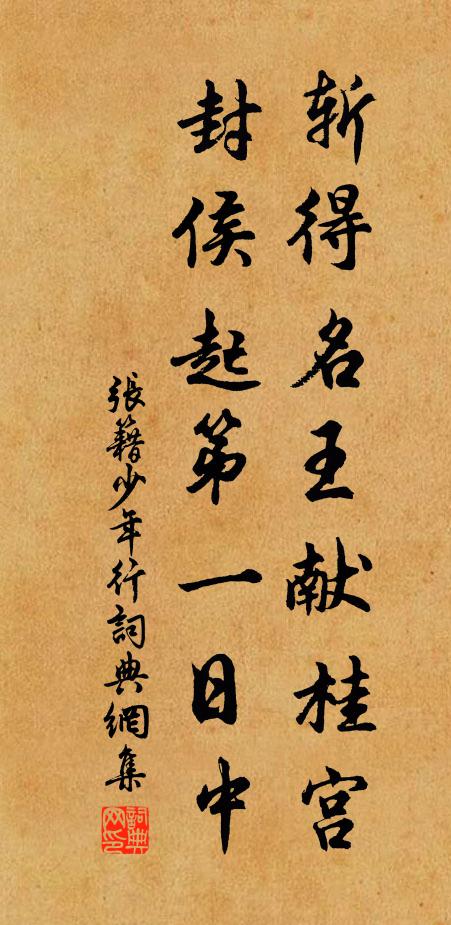 斩得名王献桂宫
封侯起第一日中
張籍少年行詞典網集
詞典网印